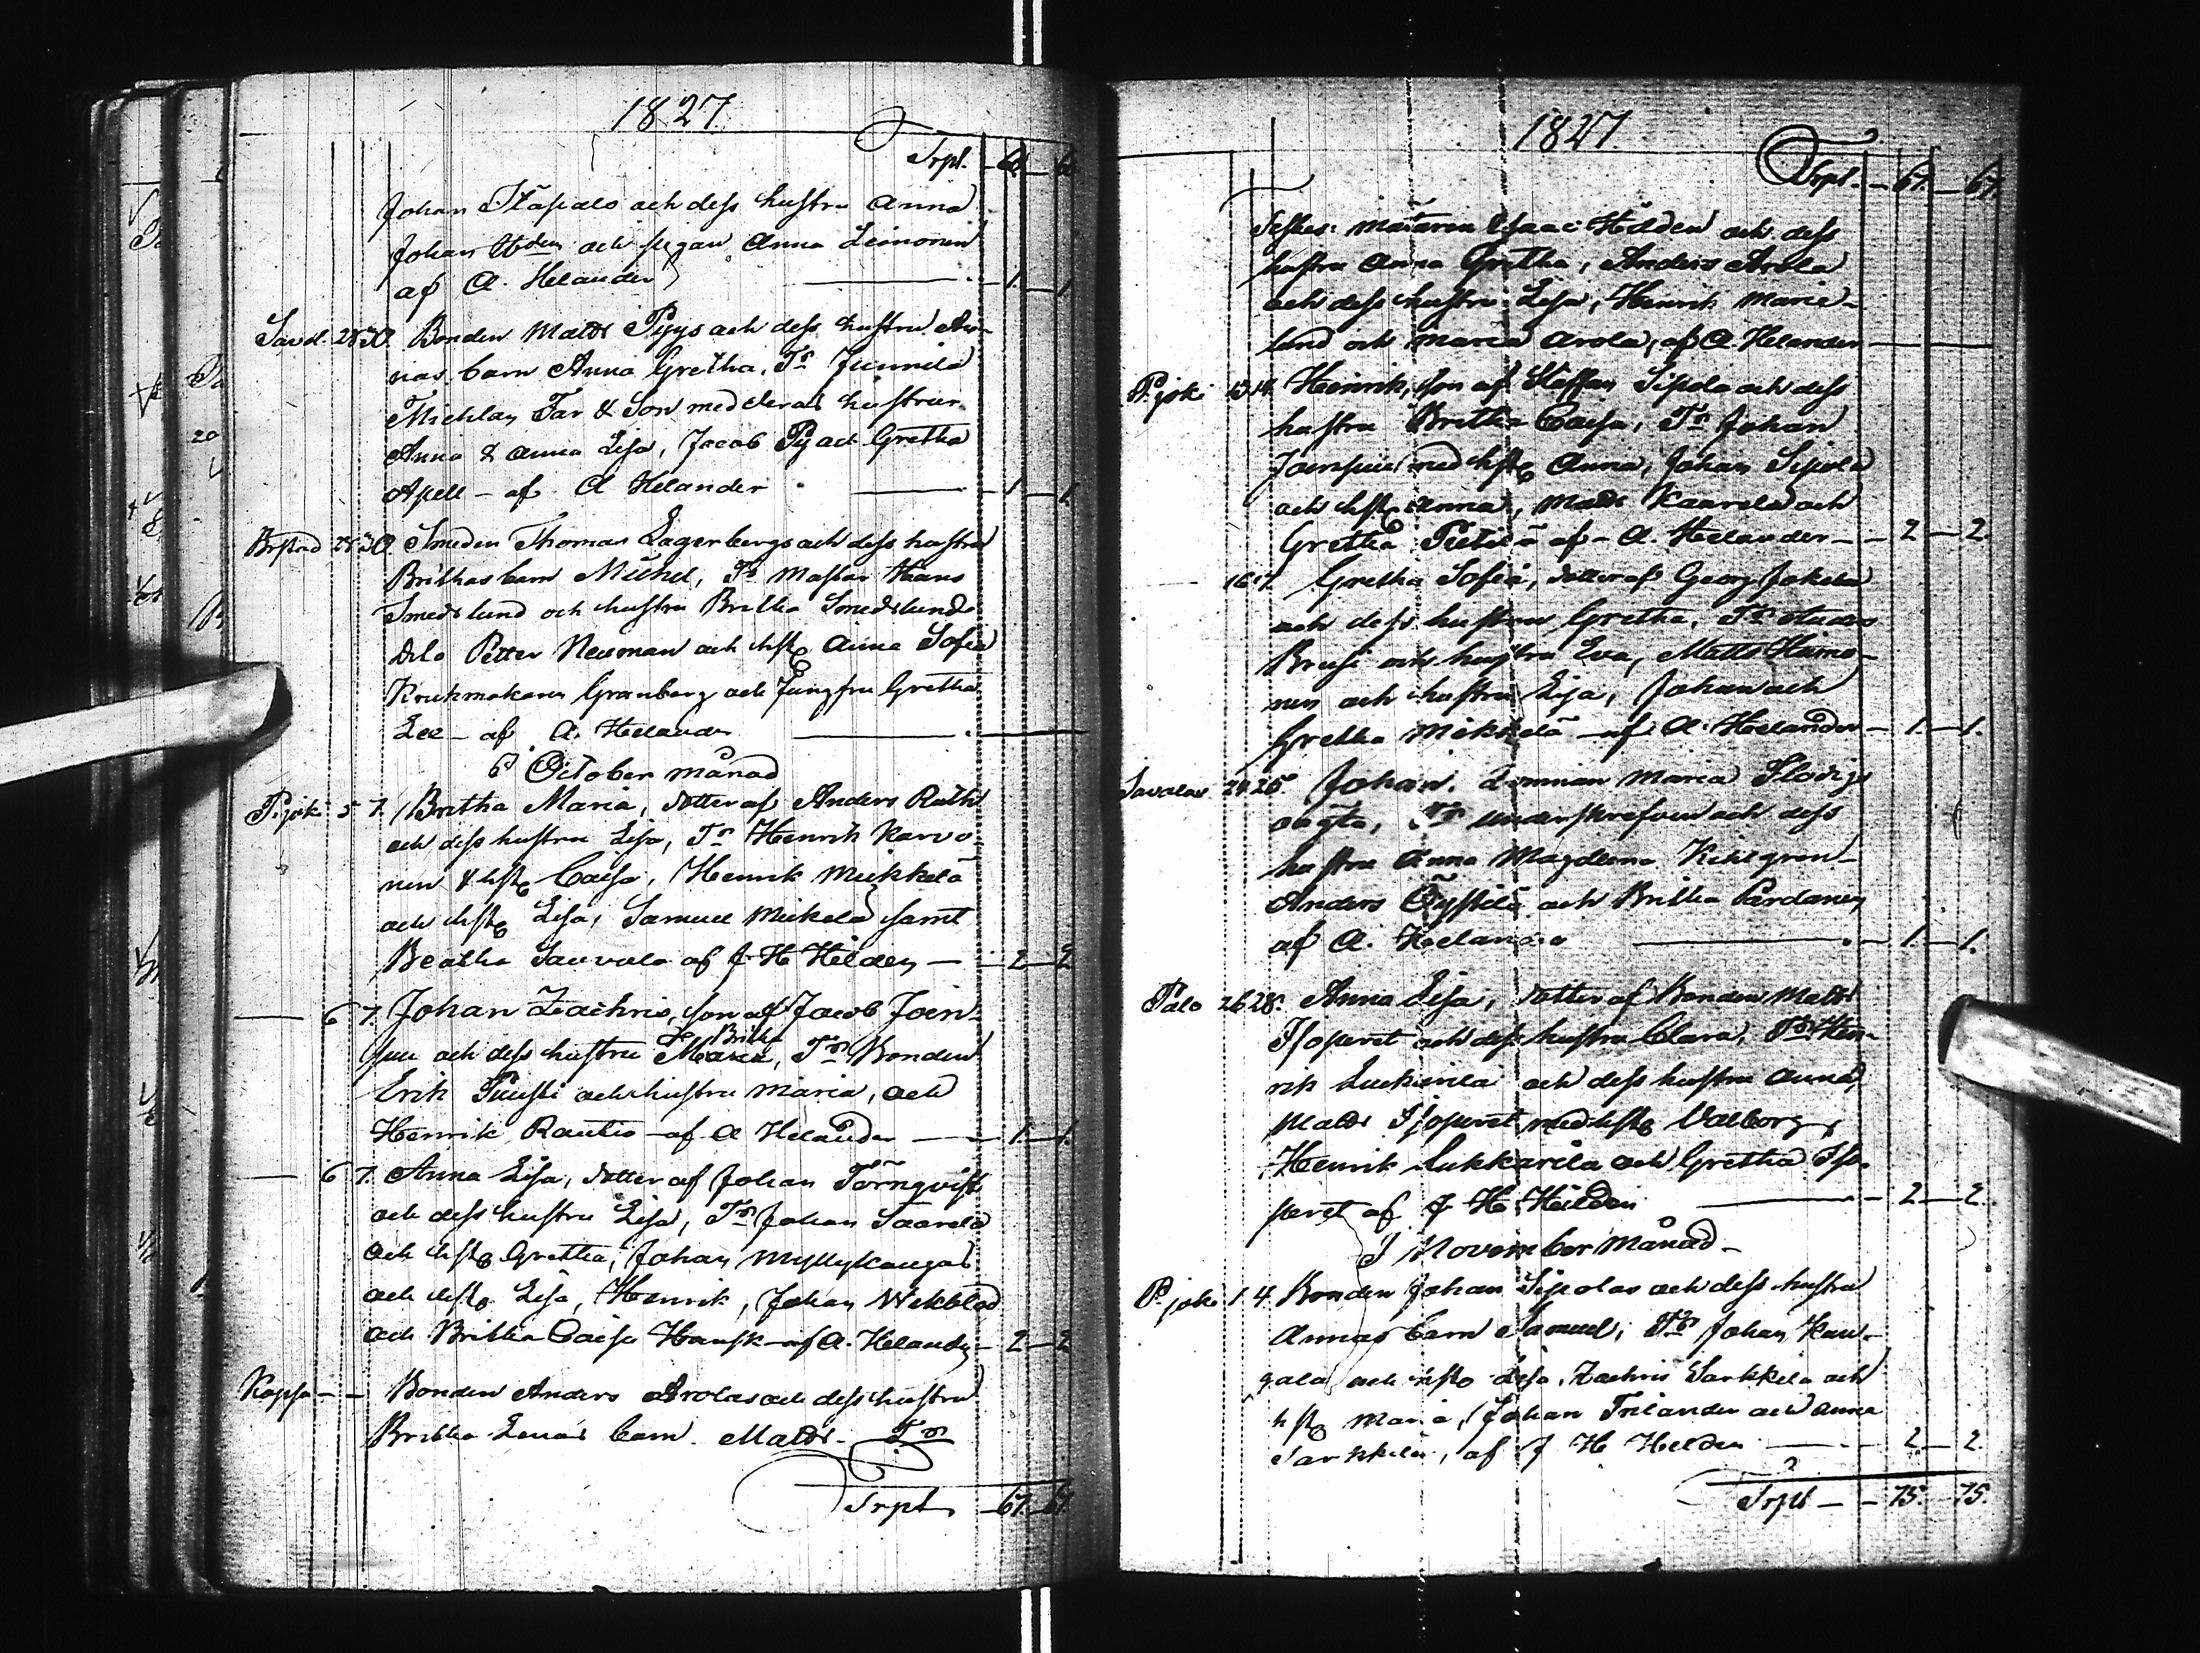 1827
Trpt. 60 60
Johan Ståpals och dess hustru Anna
Johan och pigan Anna Leinonen
af A. Helander 1 1
Savol. 28 30 Bonden Matts Pyys och dess hustru An-
nas barn Anna Gretha, Tr Junnila
Michlas Far & Son med deras hustrur
Anna & Anna Lisa, Jacob Py och Gretha
Apell - af A Helander 1 1
Brstad 28 30 Smeden Thomas Lagerbergs och dess hustru
Brithas barn Michel, Tr Mastar Hans
Smedslund och hustru Britha Smedslund
Dilo Petter Newman och hust Anna Sofia
Krukmakaren Granberg och Jungfru Gretha
Lee - af A. Helander
October månad
P.joki 5 7. Britha Maria, dotter af Anders Rath
och dess hustru Lisa, Tr Henrik Karvo
nen & hust Caisa, Henrik Mickkelä
och hust Lisa, Samuel Mickelä samt
Beatha Sauvola af J H Heldén 2 2
6 7. Johan Zachris, son af Jacob Join-
Britha
suu och dess hustru Maria, Tr Bonden
Erik Puusti och hustru Maria, och
Henrik Rautio af A Helander 1. 1.
6 7. Anna Lisa, dotter af Johan Törnqvist
och dess hustru Lisa, Tr Johan Saarela
och hust Gretha, Johan Myllykangas
och hust Lisa, Henrik, Johan Wekblad
och Britha Caisa Hansk af A. Helander 2 2
Kopsa - - Bonden Anders Arolas och dess hustru
Britha Lenas barn. Matts. Tr
Trpt 67. 67.
1827.
Trpt. 67. 67.
mätaren Isaac Helden och dess
hustru Anna Gretha, Anders Arola
och dess hustru Lisa, Henrik Marie-
lund och Maria Arola, af A. Helander
P.joki 13 14. Henrik, son af Staffan Sipola och dess
hustru Britha Caisa, Tr Johan
Joensuu med hust Anna, Johan Sipola
och hust Anna, Matts Kaarela och
Gretha Pietilä af A. Helander 2 2.
16 17. Gretha Sofia, dotter af Georg Jokela
och dess hustru Gretha, Tr
Brusi och hustru Eva, Matts Hämä-
nen och hustru Lisa, Johan och
Gretha Mikkelä af A. Helander 1. 1.
Savolax 24. 25. Johan. Maria Flodigs
oägta, Tr underskrefven och dess
hustru Anna Magdlena Kihlgren
Anders Öystilä och Britha Pardanen
af A. Helander 1. 1.
Palo 26 28. Anna Lisa, dotter af Bonden Matts
Isoperet och dess hustru Clara, Tr Hen-
rik Luckarila och dess hustru Anna,
Matts Isoperet med hust Valborg,
Henrik Lukkarila och Gretha Iso-
peret af J H Heldén 2. 2.
I November månad
P.joki 1. 4. Bonden Johan Sipolas och dess hustru
Annas barn Samuel; Tr Johan Kan-
gala och hust Lisa, Zachris Sarkkela och
hst Maria, Johan Frilander och Anna
Sarkkela, af J H Helden 2. 2.
Trpt 75. 75.